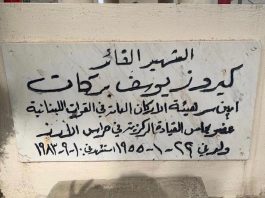 الشهيد القائد
كيروز يوسف بركات
امين سر هيئة الاركان العامة في القوات اللبنانية
عضو مجلس القيادة المركزية في حراس الأرز
ولد في ٢٢-١-١٩٥٥ استشهد في ١٠-٩-١٩٨٣